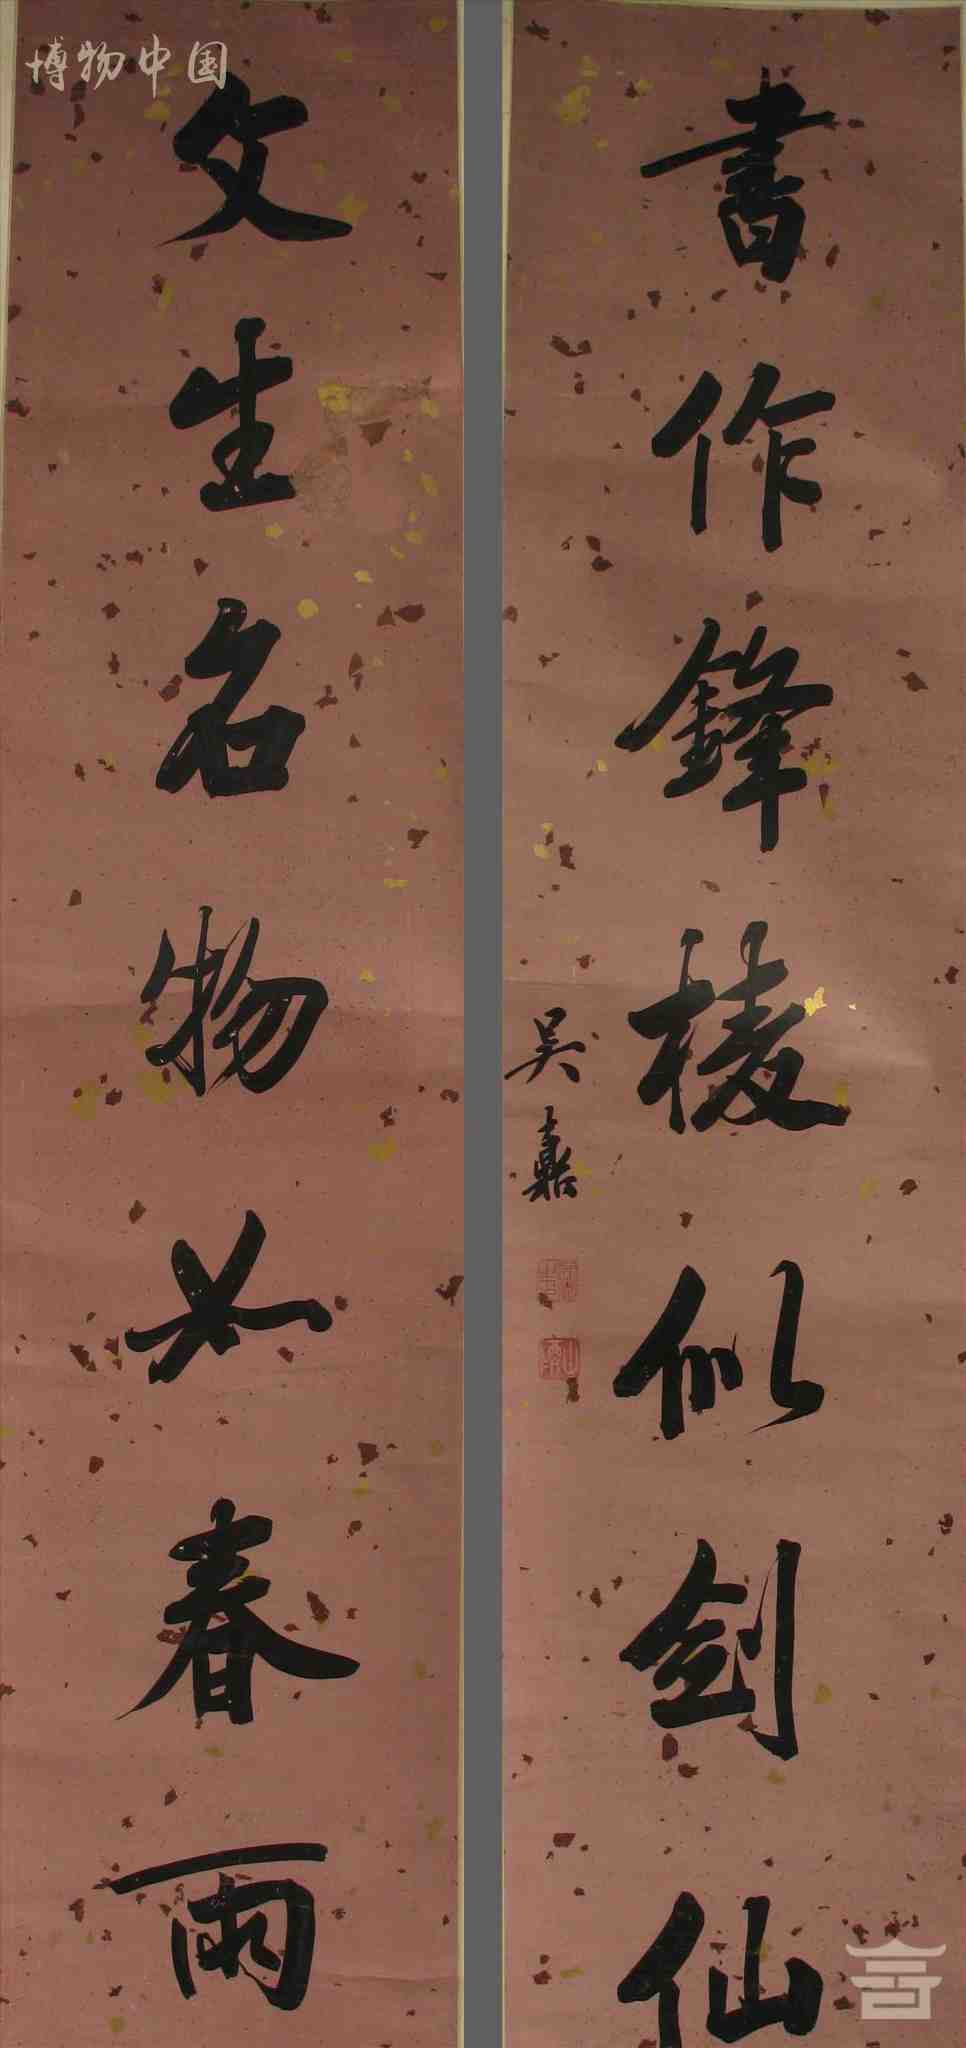 博物中国
文生名物如春雨
書作鋒棱似劍仙
吳熹